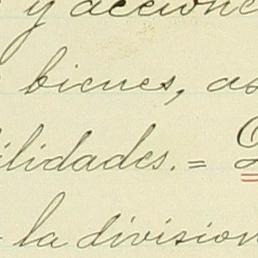 y accione
bienes, as
ilidades. =
la division